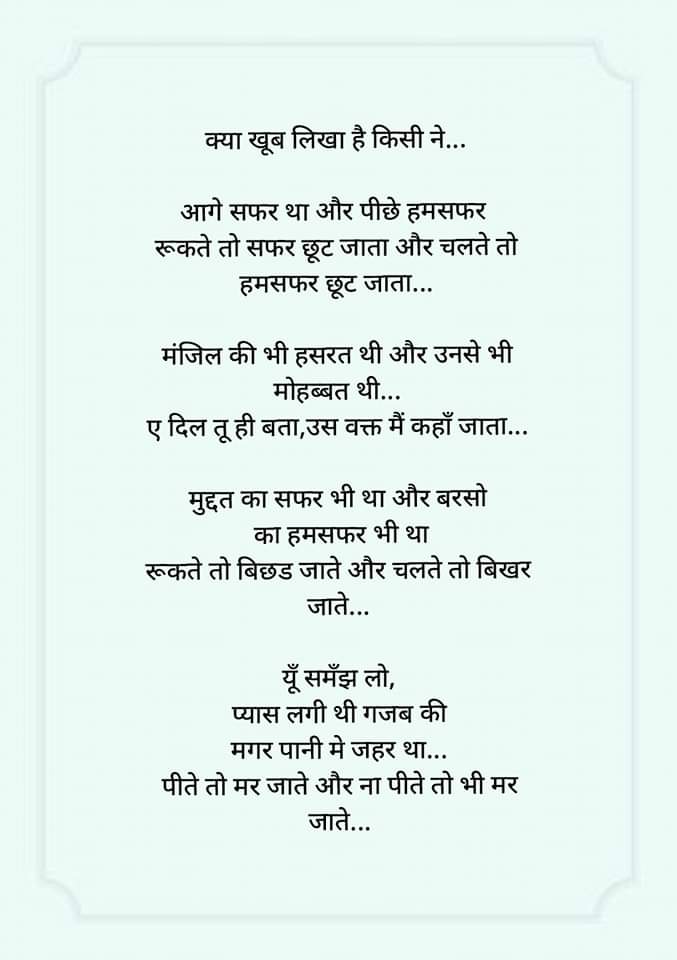 क्या खूब लिखा है किसी ने...
आगे सफर था और पीछे हमसफर
रूकते तो सफर छूट जाता और चलते तो
हमसफर छूट जाता...
मंजिल की भी हसरत थी और उनसे भी
मोहब्बत थी...
ए दिल तू ही बता,उस वक्त मैं कहाँ जाता...
मुद्दत का सफर भी था और बरसो
का हमसफर भी था
रूकते तो बिछड जाते और चलते तो बिखर
जाते...
यूँ समँझ लो,
प्यास लगी थी गजब की
मगर पानी मे जहर था...
पीते तो मर जाते और ना पीते तो भी मर
जाते...